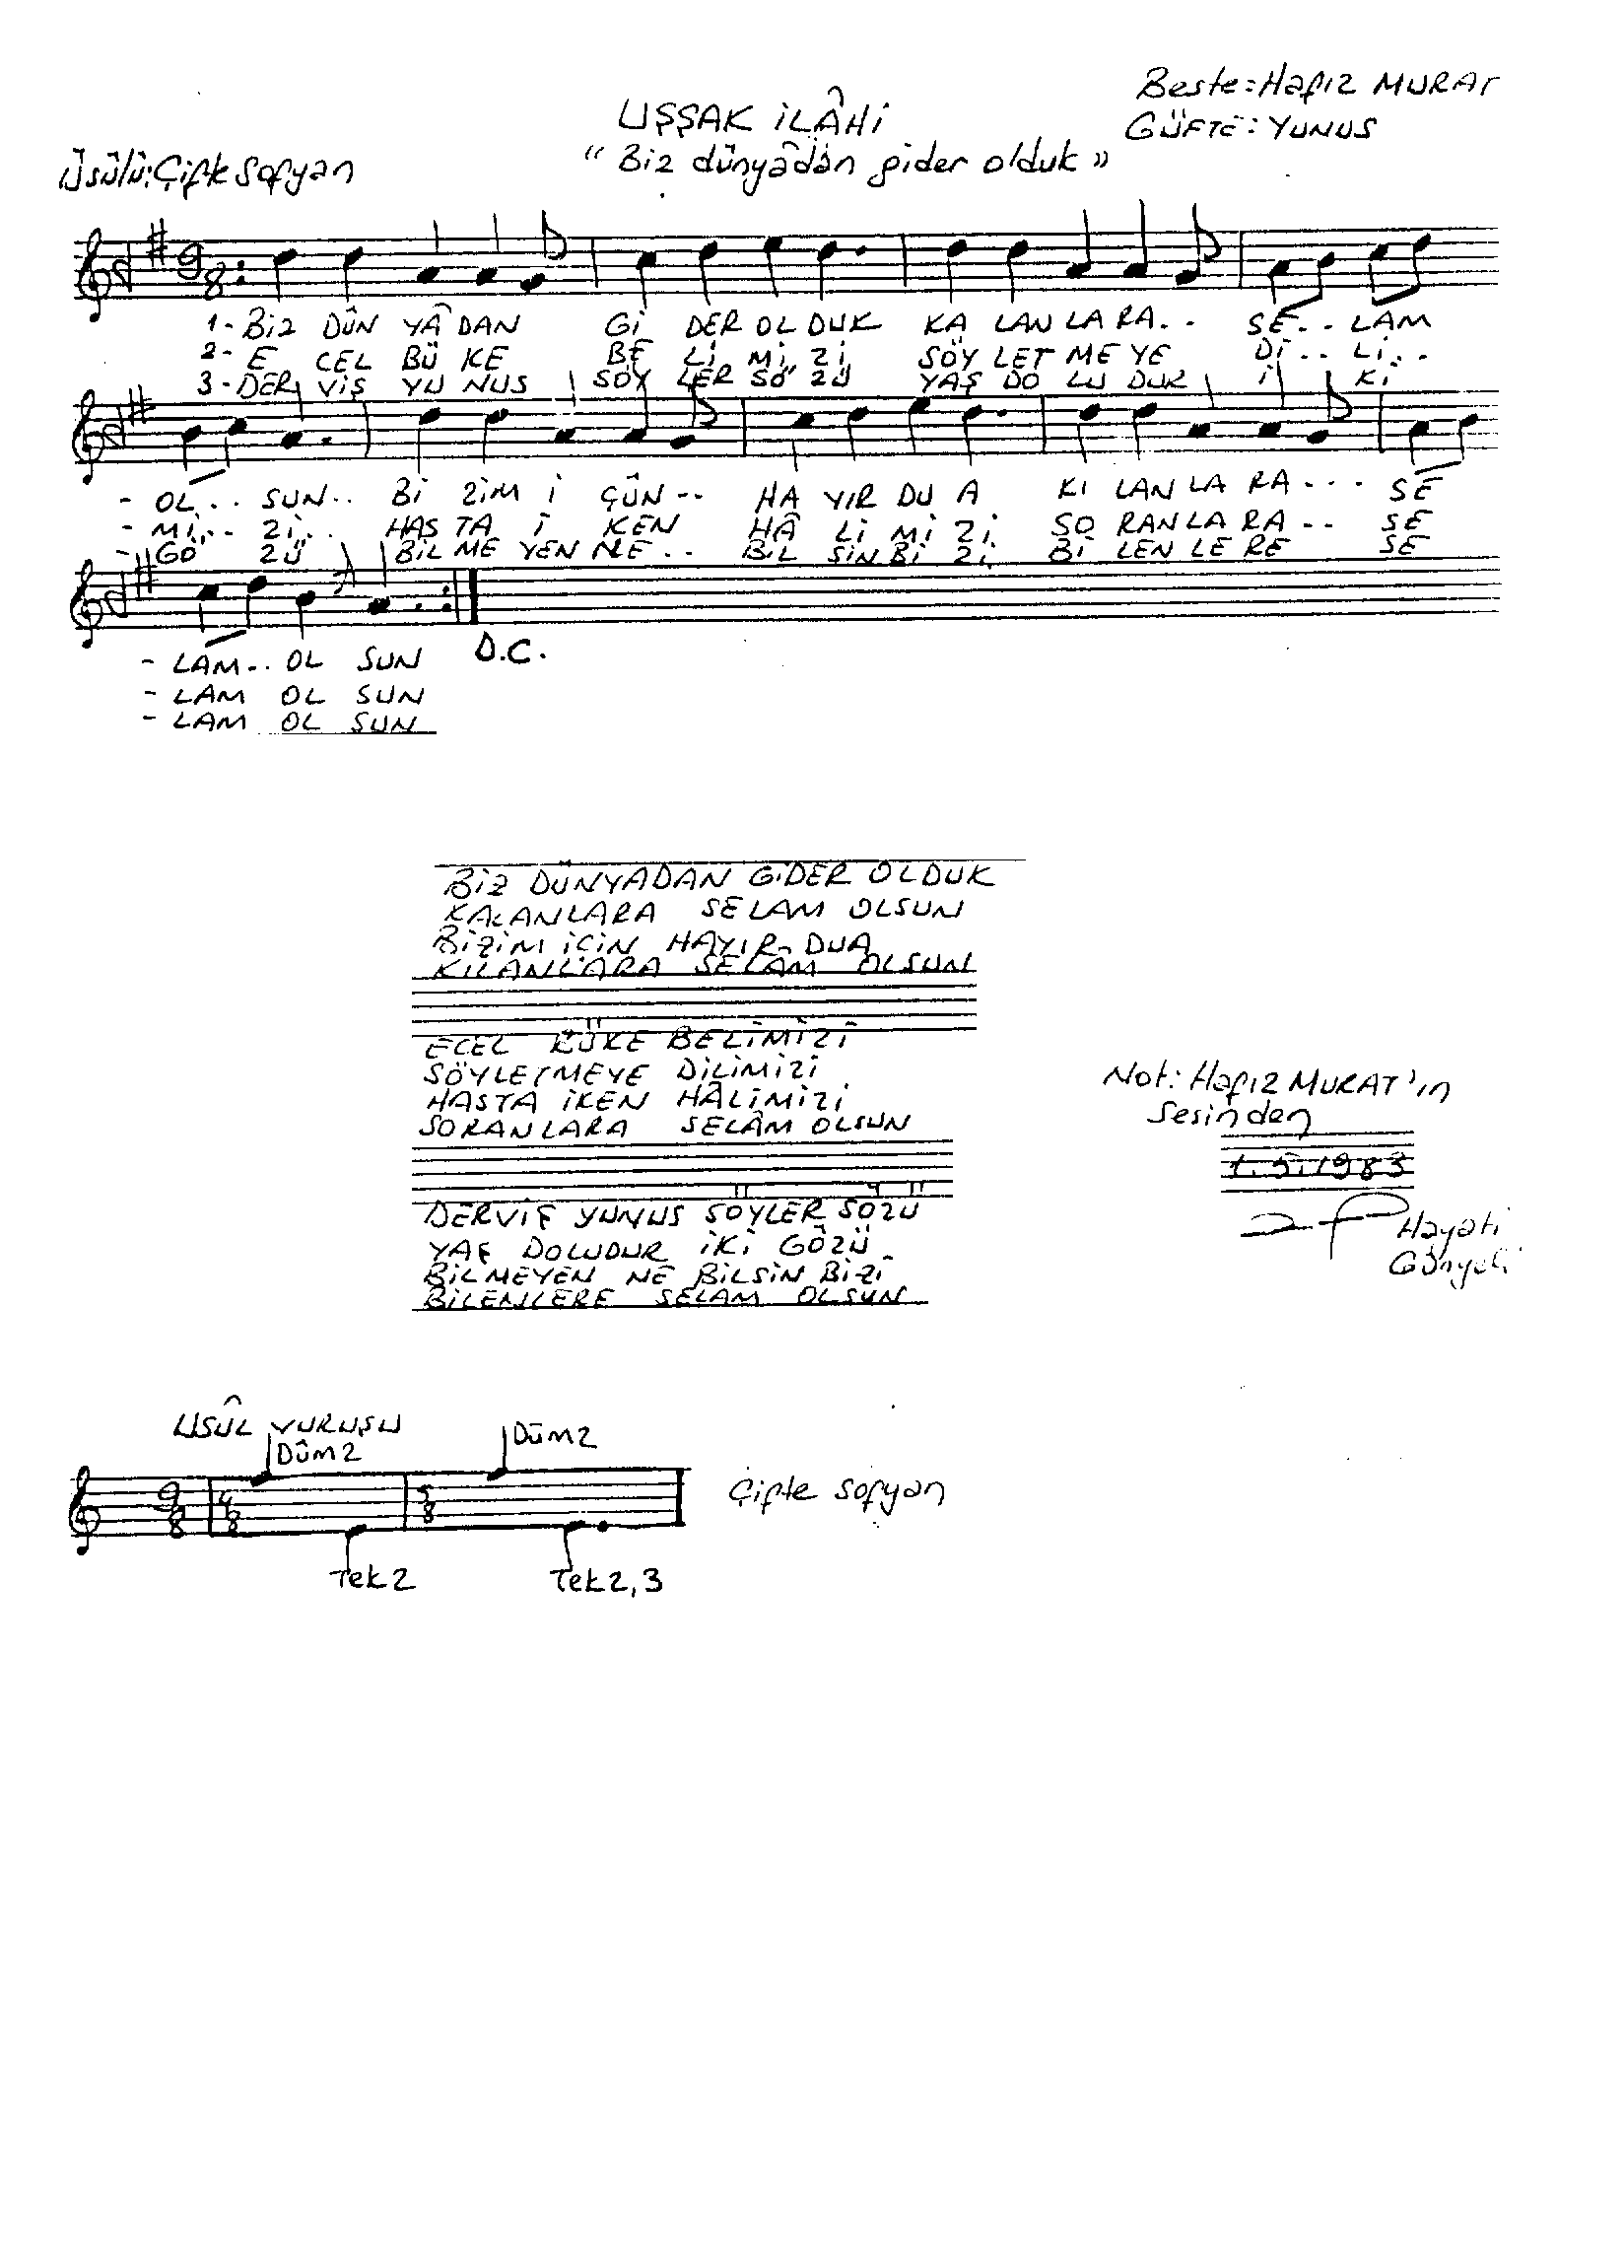 Beste: Hafız MURAT
UŞŞAK İLÂHİ
GÜFTE: YUNUS
Üsûlü: Çifte Sofyan
“Biz dünyâdan gider olduk”
9
8
1- BİZ DÜN YÂ DAN Gİ DER OL DUK KA LAN LA RA.. SE.. LAM
2- E CEL BÜ KE BE Lİ Mİ Zİ SÖY LET ME YE Dİ.. Lİ..
3- DER VİŞ YU NUS SÖY LER SÖ ZÜ YAŞ DO LU DUR İ Kİ
- OL... SUN.. Bİ ZİM İ ÇÜN-- HA YIR DU A KI LAN LA RA... SE
- Mİ... Zİ... HAS TA İ KEN HÂ Lİ Mİ Zİ SO RAN LA RA-- SE
- GÖ ZÜ BİL ME YEN NE.. BİL SİN Bİ Zİ Bİ LEN LE RE SE
- LAM.. OL SUN D.C.
- LAM OL SUN
- LAM OL SUN
BİZ DÜNYADAN GİDER OLDUK
KALANLARA SELAM OLSUN
BİZİM İÇİN HAYIR DUA
KILANLARA SELÂM OLSUN
ECEL BÜKE BELİMİZİ
SÖYLETMEYE DİLİMİZİ
HASTA İKEN HÂLİMİZİ
SORANLARA SELÂM OLSUN
DERVİŞ YUNUS SÖYLER SÖZÜ
YAŞ DOLUDUR İKİ GÖZÜ
BİLMEYEN NE BİLSİN BİZİ
BİLENLERE SELAM OLSUN
Not: Hafız MURAT'ın
Sesinden
1.5.1983
Hayati
Günyeli
USÛL VURUŞU
Düm 2 Düm 2
9 4 5
8 8 8
Çifte Sofyan
Tek 2 Tek 2,3